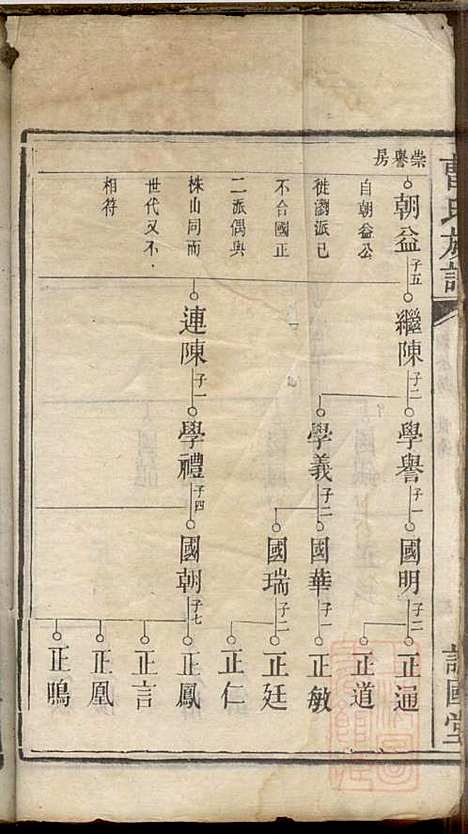 曹氏族譜
崇譽房
朝益 子五
自朝益公
徙瀏派已
不合國正
二派偶與
株山同而
世代又不
相符
繼陳 子二
連陳 子一
學譽 子一
學義 子二
學禮 子四
國明 子二
國華 子一
國瑞 子二
國朝 子七
正通
正道
正敏
正廷
正仁
正鳳
正言
正凰
正鳴